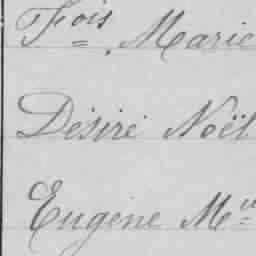 Fois, Marie
Désiré Noël
Eugène Mie